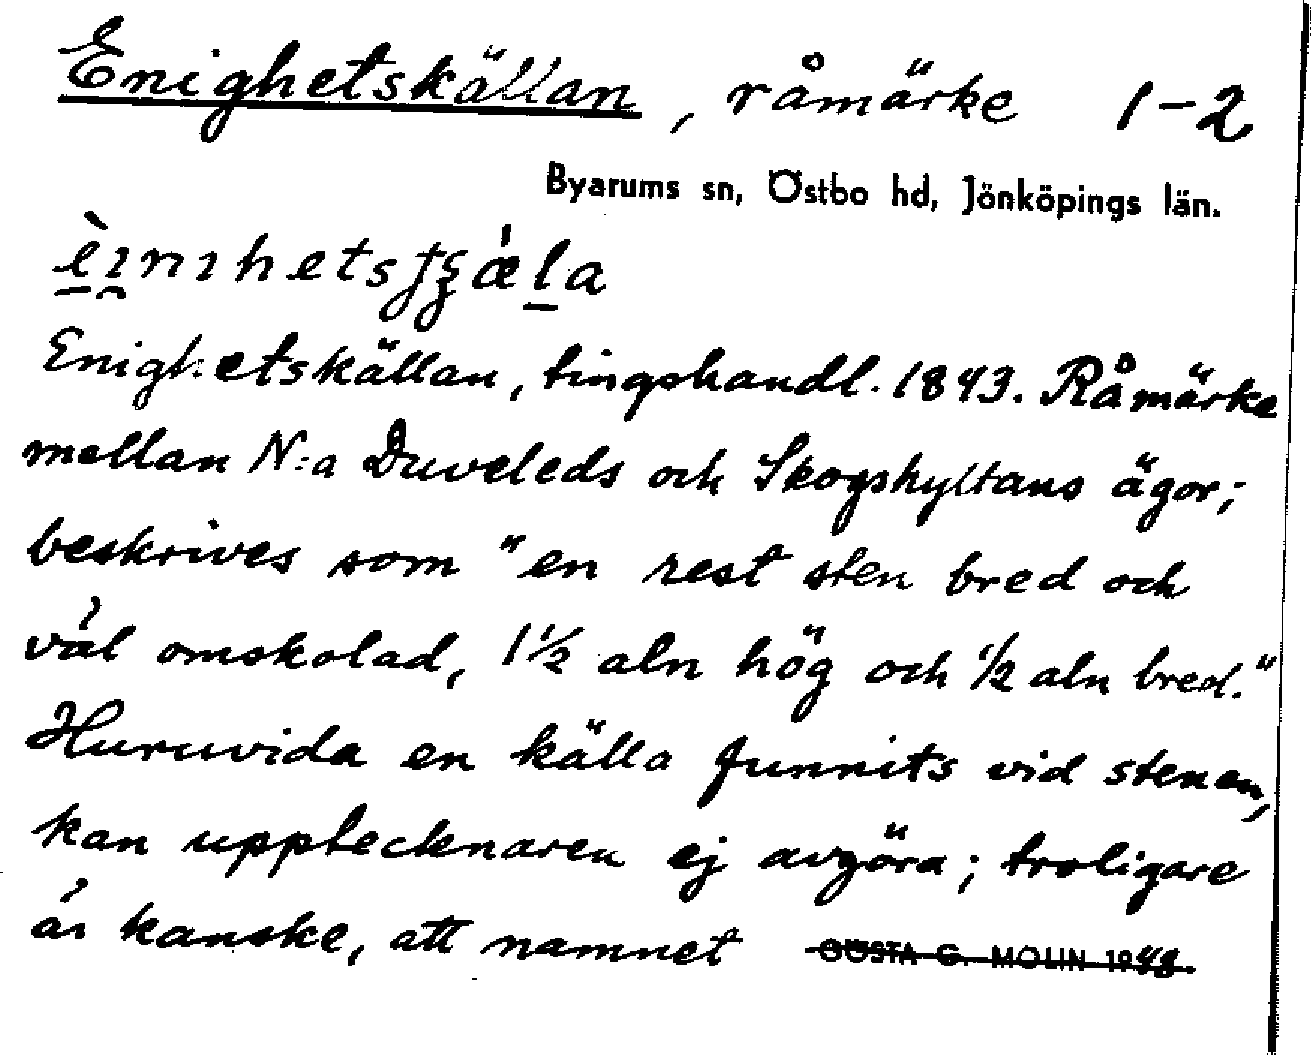 Enighetskällan, råmärke 1-2
Byarums sn, Östbo hd, Jönköpings län.
Enighetskällan, tingshandl. 1843. Råmärke
mellan N:a Duveleds och Skogshyltans ägor;
beskrives som "en rest sten bred och
väl omskolad, 1½ aln hög och ½ aln bred."
Huruvida en källa funnits vid stenen,
kan upptecknaren ej avgöra; troligare
är kanske, att namnet GÖSTA G. MOLIN 1948.